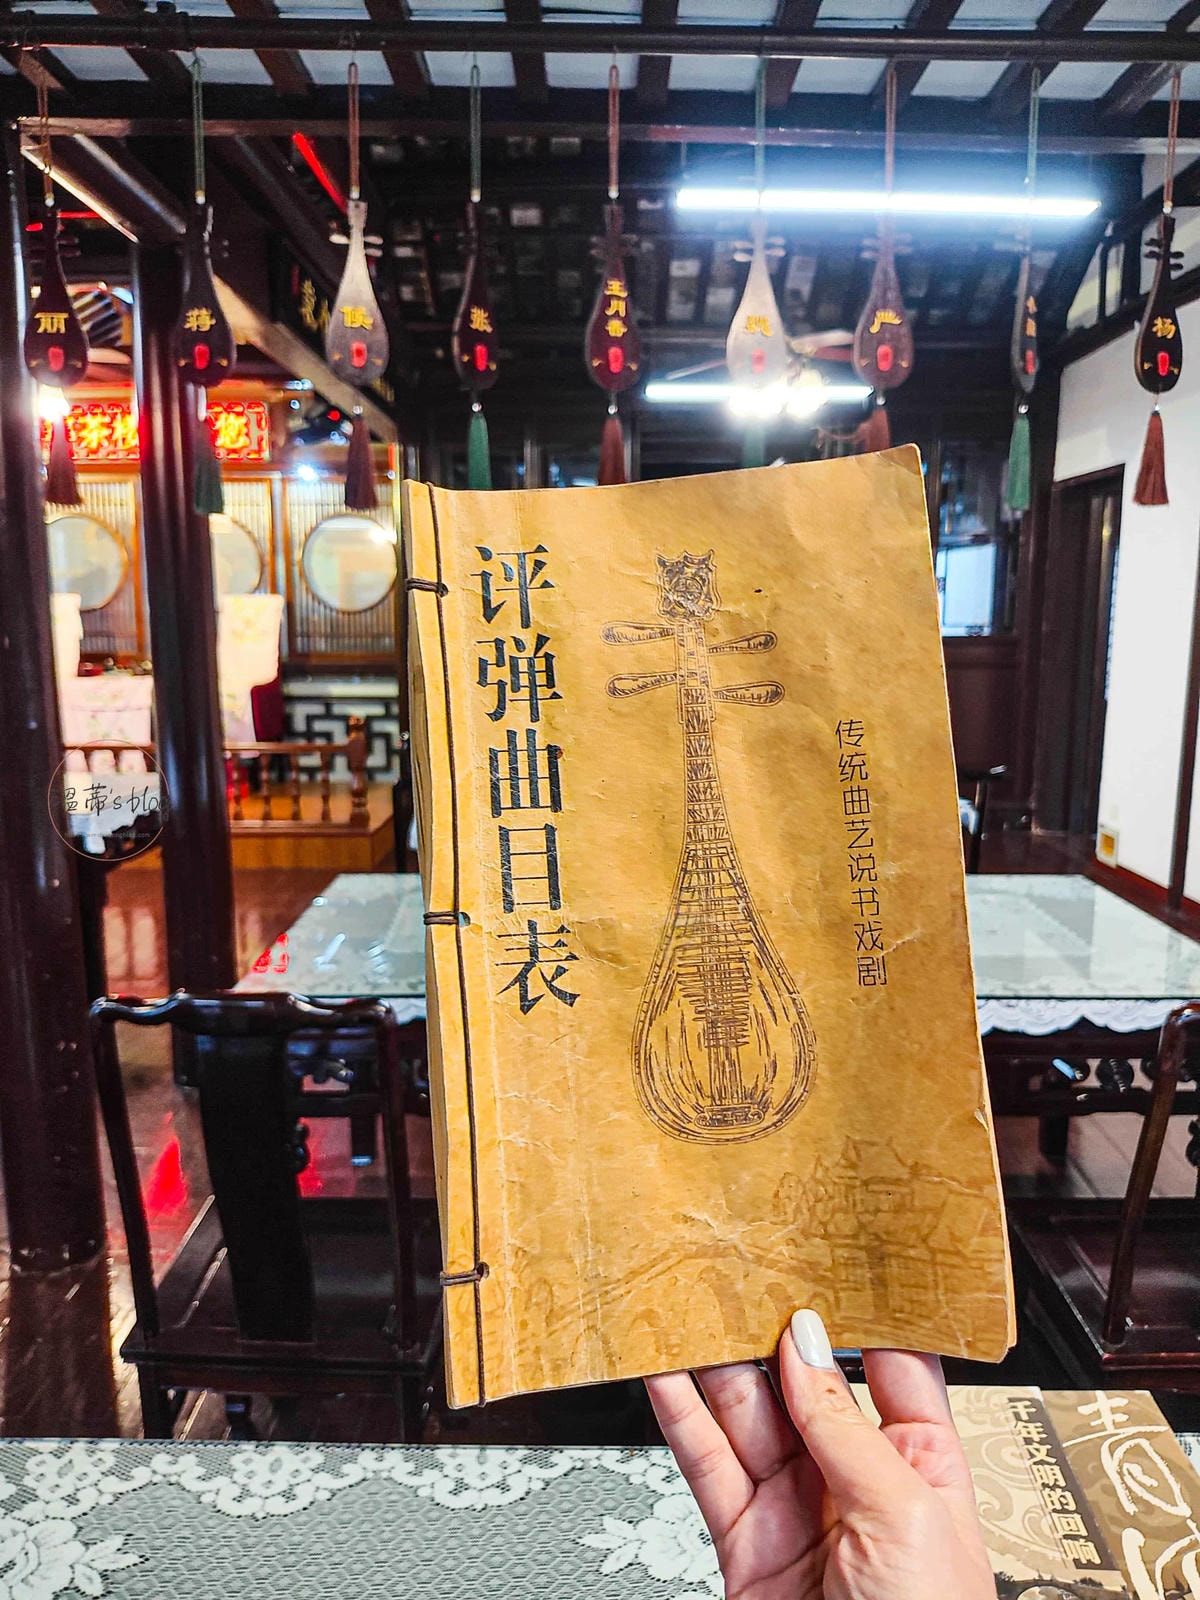 丽
蒋
侯
张
王月香
魏
严
杨
茶楼
您
评弹曲目表
传统曲艺说书戏剧
温蒂's blog
千年文明的回声